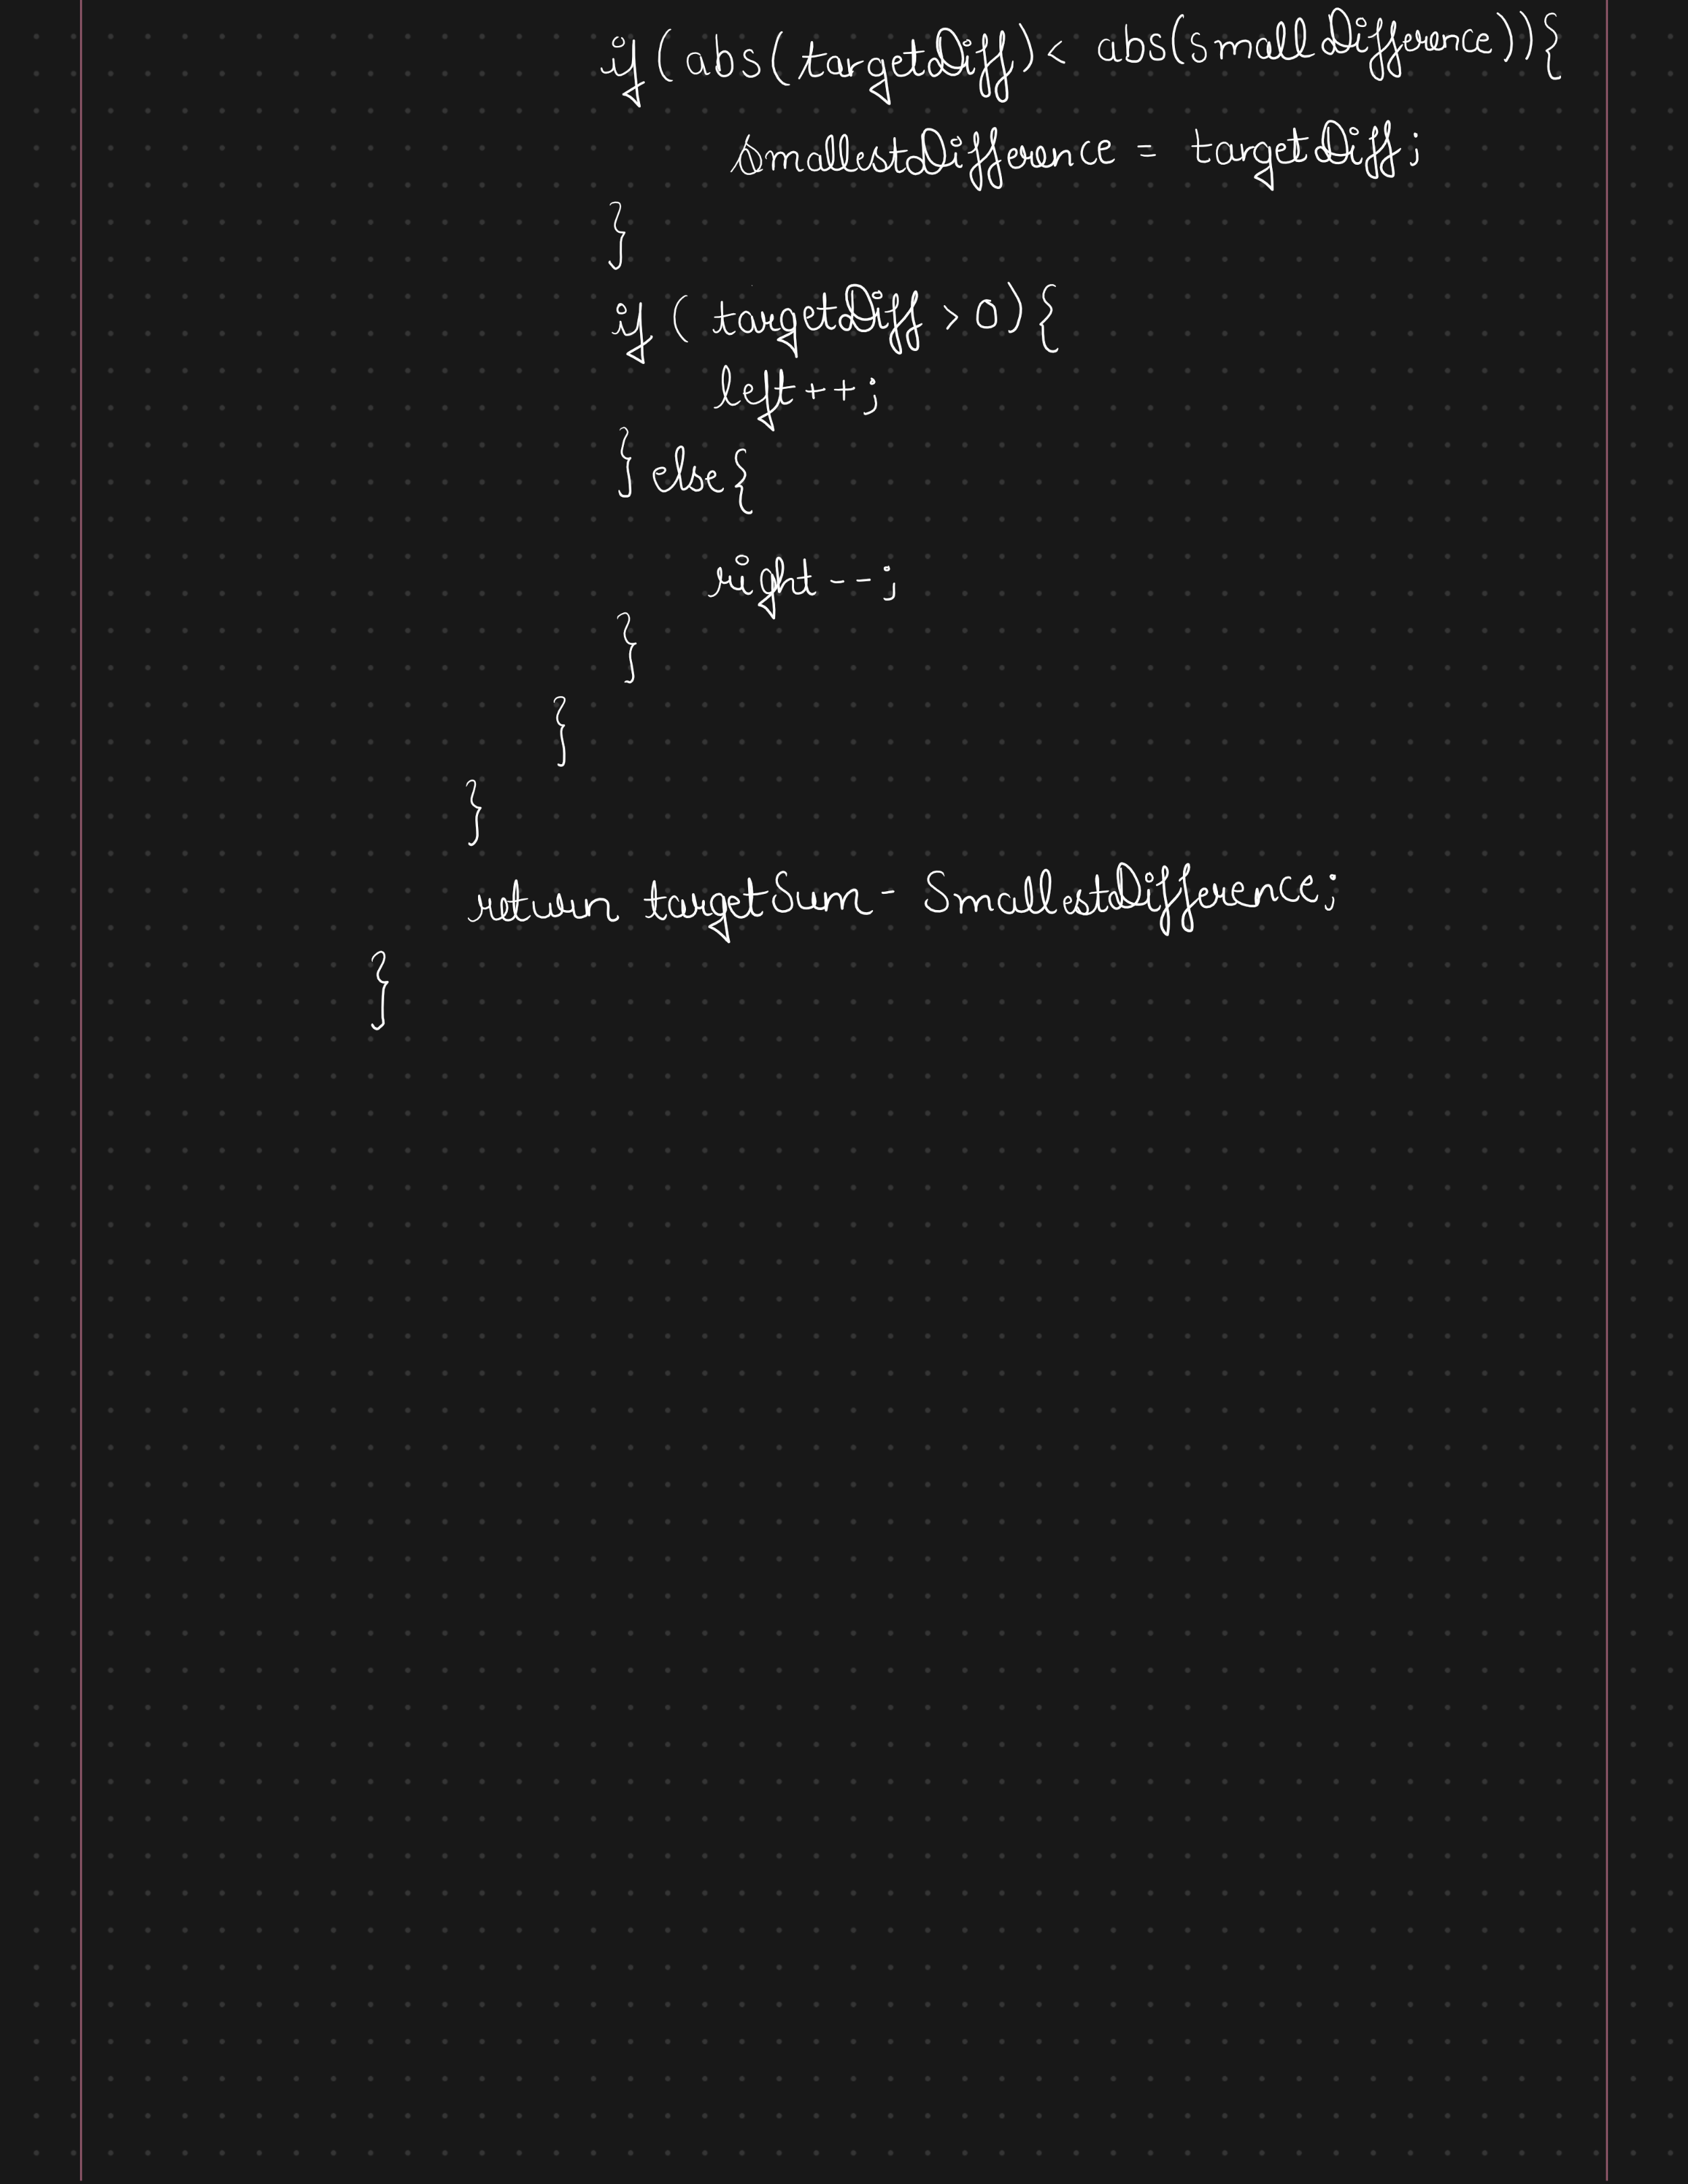 if (abs(targetDiff) < abs(smallDifference)){
smallestDifference = targetDiff;
}
if (targetDiff > 0) {
left++;
} else {
right--;
}
}
}
return targetSum - SmallestDifference;
}